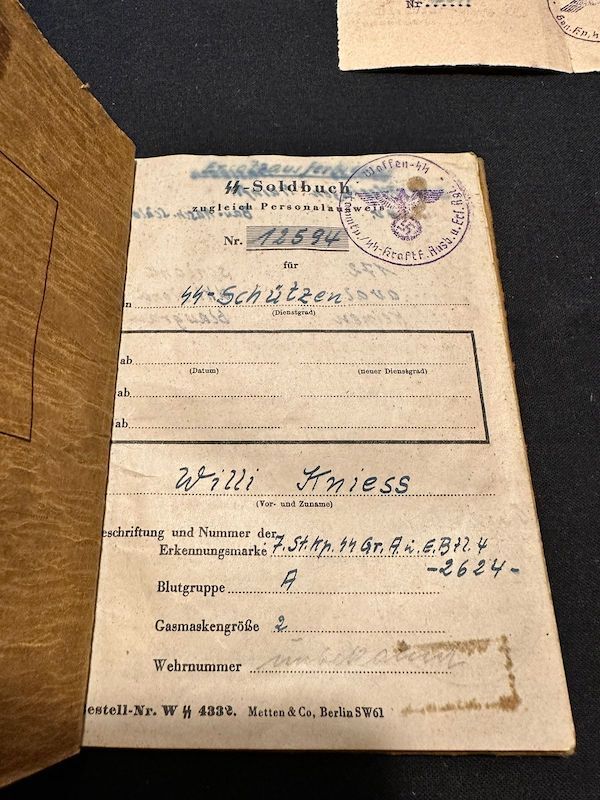 Nr.
ᛋᛋ-Soldbuch
zugleich Personalausweis
Waffen-ᛋᛋ
ᛋᛋ-Kraftf. Ausb. u. Ers.
Nr. 12594
für
n ᛋᛋ-Schützen
(Dienstgrad)
ab
(Datum) (neuer Dienstgrad)
ab
ab
Willi Kniess
(Vor- und Zuname)
eschriftung und Nummer der
Erkennungsmarke 7. St. Kp. ᛋᛋ Gr. A. u. E. Btl. 4
-2624-
Blutgruppe A
Gasmaskengröße 2
Wehrnummer unbekannt
estell-Nr. W ᛋᛋ 4332. Metten & Co, Berlin SW61